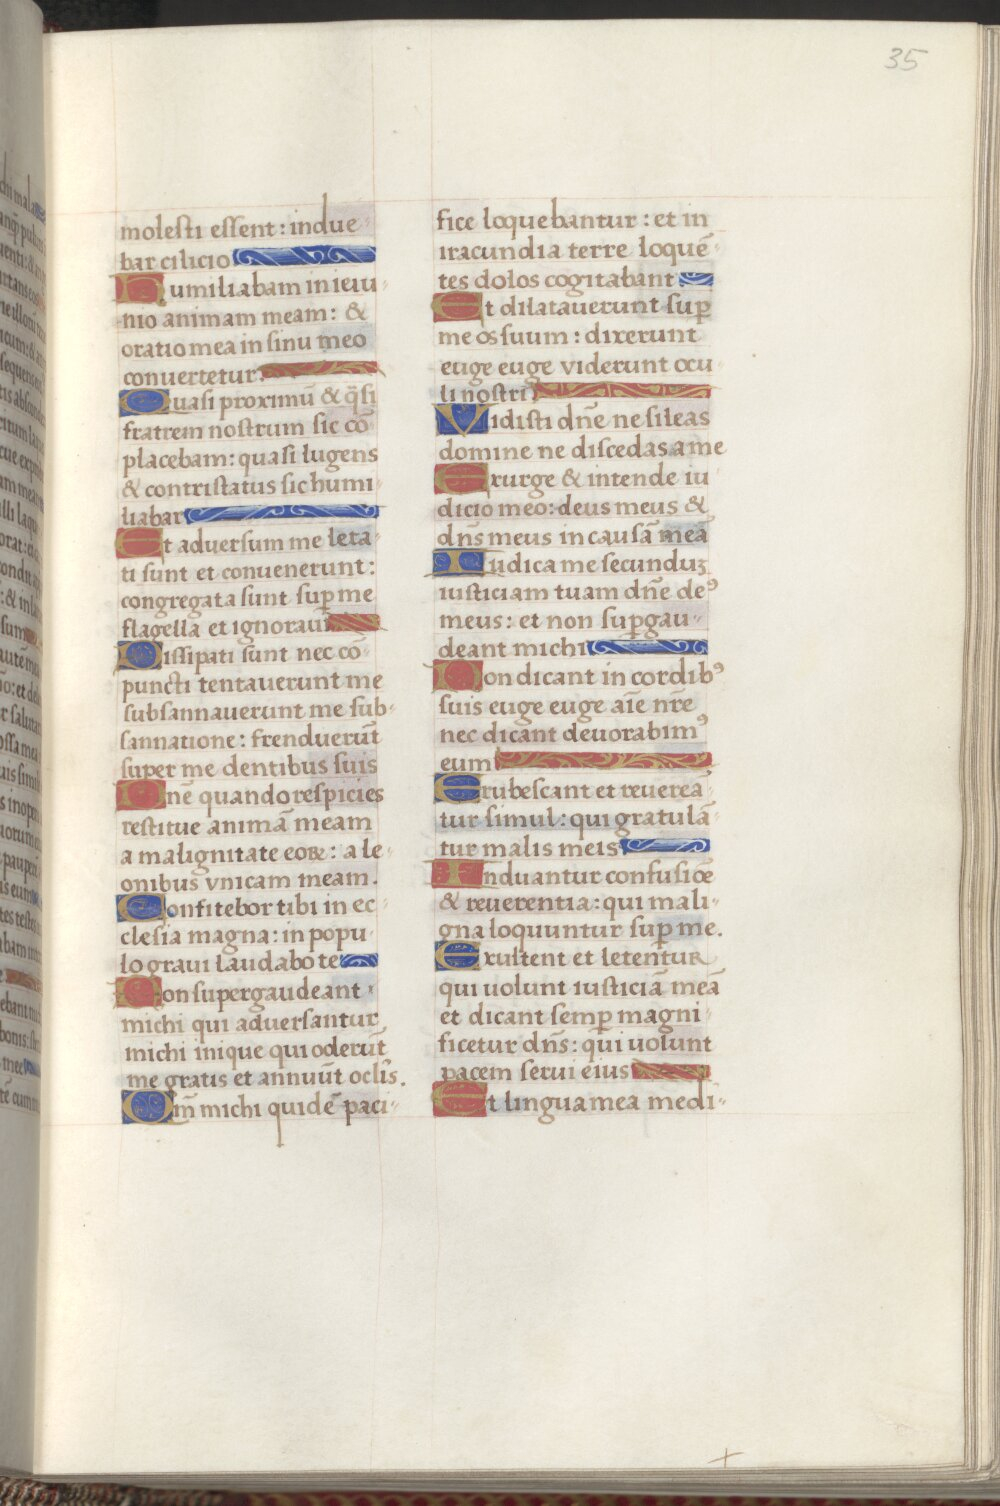 35
molesti essent : indue
bar cilicio
Humiliabam in ieiu-
nio animam meam : &
oratio mea in sinu meo
convertetur.
Quasi proximū & q̄si
fratrem nostrum sic cō-
placebam : quasi lugens
& contristatus sic humi-
liabar
Et adversum me leta-
ti sunt et convenerunt :
congregata sunt sup̄ me
flagella et ignoravi
Dissipati sunt nec cō-
puncti tentaverunt me
subsannaverunt me sub-
sannatione : frenduerūt
super me dentibus suis
Dn̄e quando respicies
restitue animā meam
a malignitate eoꝝ : a le-
onibus vnicam meam.
Confitebor tibi in ec-
clesia magna : in popu-
lo gravi laudabo te
Non supergaudeant
michi qui adversantur
michi inique qui oderūt
me gratis et annuūt oclīs.
Qm̄ michi quidē paci-
fice loquebantur : et in
iracundia terre loquē-
tes dolos cogitabant
Et dilataverunt sup̄
me os suum : dixerunt
euge euge viderunt ocu
li nostri
Vidisti dn̄e ne sileas
domine ne discedas a me
Exurge & intende iu
dicio meo : deus meus &
dn̄s meus in causā meā
Iudica me secunduꝫ
iusticiam tuam dn̄e deꝰ
meus : et non sup̄gau-
deant michi
Non dicant in cordibꝰ
suis euge euge aīe nr̄e
nec dicant devorabimꝰ
eum
Erubescant et reuereā-
tur simul : qui gratulā-
tur malis meis
Induantur confusiōe
& reuerentia : qui mali-
gna loquuntur sup̄ me.
Exultent et letentur
qui uolunt iusticiā meā
et dicant semp̄ magni-
ficetur dn̄s : qui uolunt
pacem serui eius
Et lingua mea medi-